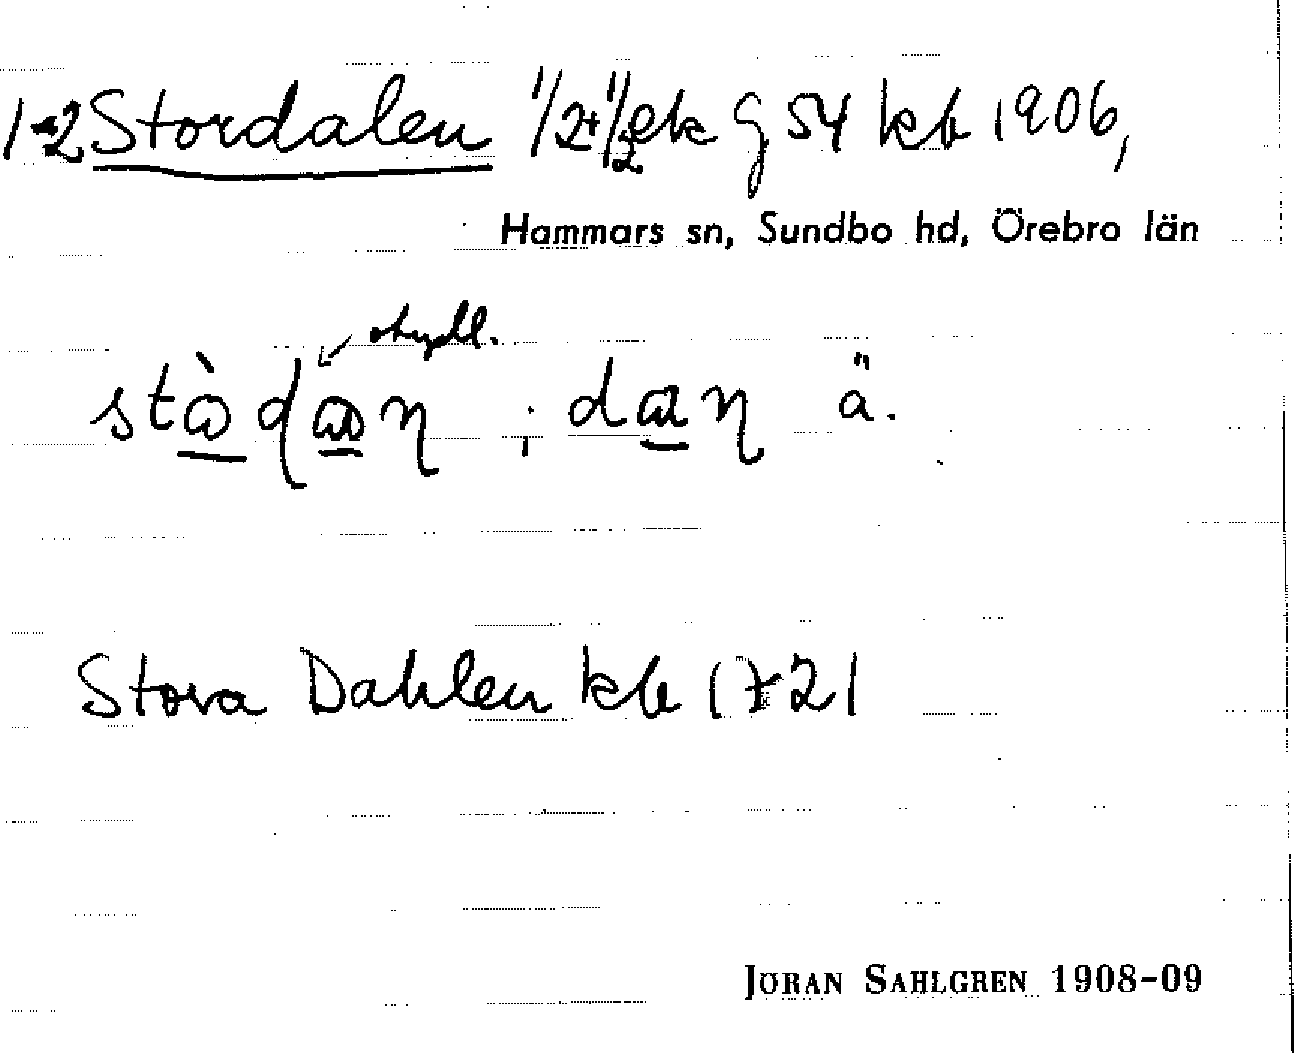 1-2 Stordalen 1/2+1/2 ek g 54 kb 1906,
Hammars sn, Sundbo hd, Örebro län
otydl.
stɷ̀dɷn ; dɑn ä.
Stora Dahlen kb 1721
JÖRAN SAHLGREN 1908-09